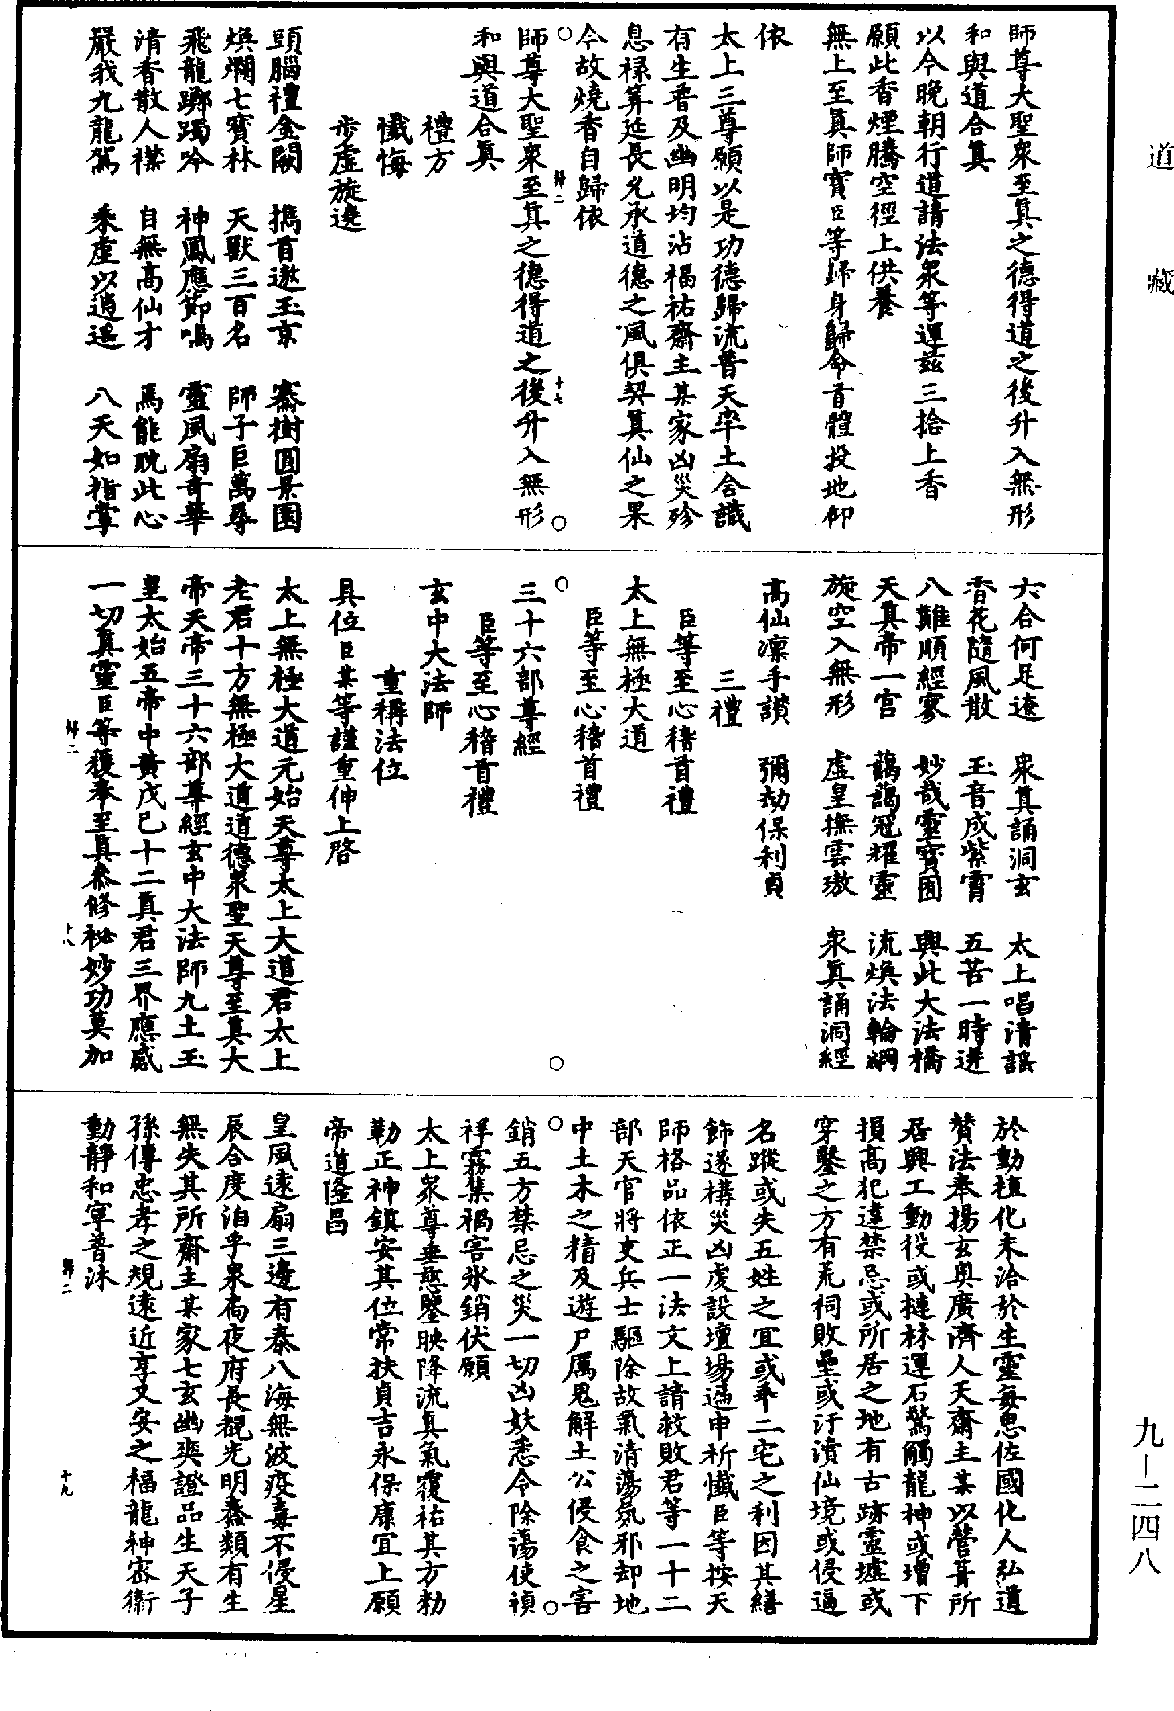 道藏
師尊大聖衆至真之德得道之後升入無形
和與道合真
以今晚朝行道請法衆等運茲三捻上香
願此香煙騰空徑上供養
無上至真師寶臣等歸身歸命首體投地仰
依
太上三尊願以是功德歸流普天率土含識
有生普及幽明均沾福祐齋主某家凶災殄
息祿筭延長允承道德之風俱契真仙之果
今故燒香自歸依
歸二
十七
師尊大聖衆至真之德得道之後升入無形
和與道合真
禮方
懺悔
步虛旋遶
頭腦禮金闕 擕首遨玉京 騫樹圓景園
煥爛七寶林 天獸三百名 師子巨萬尋
飛龍躑躅吟 神鳳應節鳴 靈風扇奇華
清香散人襟 自無高仙才 焉能躭此心
嚴我九龍駕 乘虛以逍遥 八天如指掌
六合何足遼 衆真誦洞玄 太上唱清謡
香花隨風散 玉音成紫霄 五苦一時迸
八難順經寥 妙哉靈寶囿 興此大法橋
天真帝一宮 藹藹冠耀靈 流煥法輪綱
旋空入無形 虛皇撫雲璈 衆真誦洞經
高仙凛手讃 彌劫保利貞
三禮
臣等至心稽首禮
太上無極大道
臣等至心稽首禮
三十六部尊經
臣等至心稽首禮
玄中大法師
重稱法位
具位臣某等謹重伸上啓
太上無極大道元始天尊太上大道君太上
老君十方無極大道道德衆聖天尊至真大
帝天帝三十六部尊經玄中大法師九土玉
皇太始五帝中黄戊己十二真君三界應感
一切真靈臣等獲奉至真叅修祕妙功莫加
歸二
十八
於動植化未洽於生靈每思佐國化人弘道
賛法奉揚玄奥廣濟人天齋主某以營葺所
居興工動役或揵林運石驚觸龍神或增下
損高犯違禁忌或所居之地有古跡靈墟或
穿鑿之方有荒祠敗壘或汙瀆仙境或侵逼
名蹤或失五姓之宜或乖二宅之利因其繕
飾遂構災凶虔設壇場遍申祈懺臣等按天
師格品依正一法文上請救敗君等一十二
部天官將吏兵士驅除故氣清蕩氛邪却地
中土木之精及遊尸厲鬼解土公侵食之害
銷五方禁忌之災一切凶妖悉令除蕩使禎
祥霧集禍害氷銷伏願
太上衆尊垂慜鑒映降流真氣覆祐其方勑
勒正神鎮安其位常扶貞吉永保康宜上願
帝道隆昌
皇風遠扇三邊有泰八海無波疫毒不侵星
辰合度洎乎泉扃夜府長覩光明蠢類有生
無失其所齋主某家七玄幽爽證品生天子
孫傳忠孝之規遠近享乂安之福龍神密衛
動靜和寧普沐
歸二
十九
九—二四八